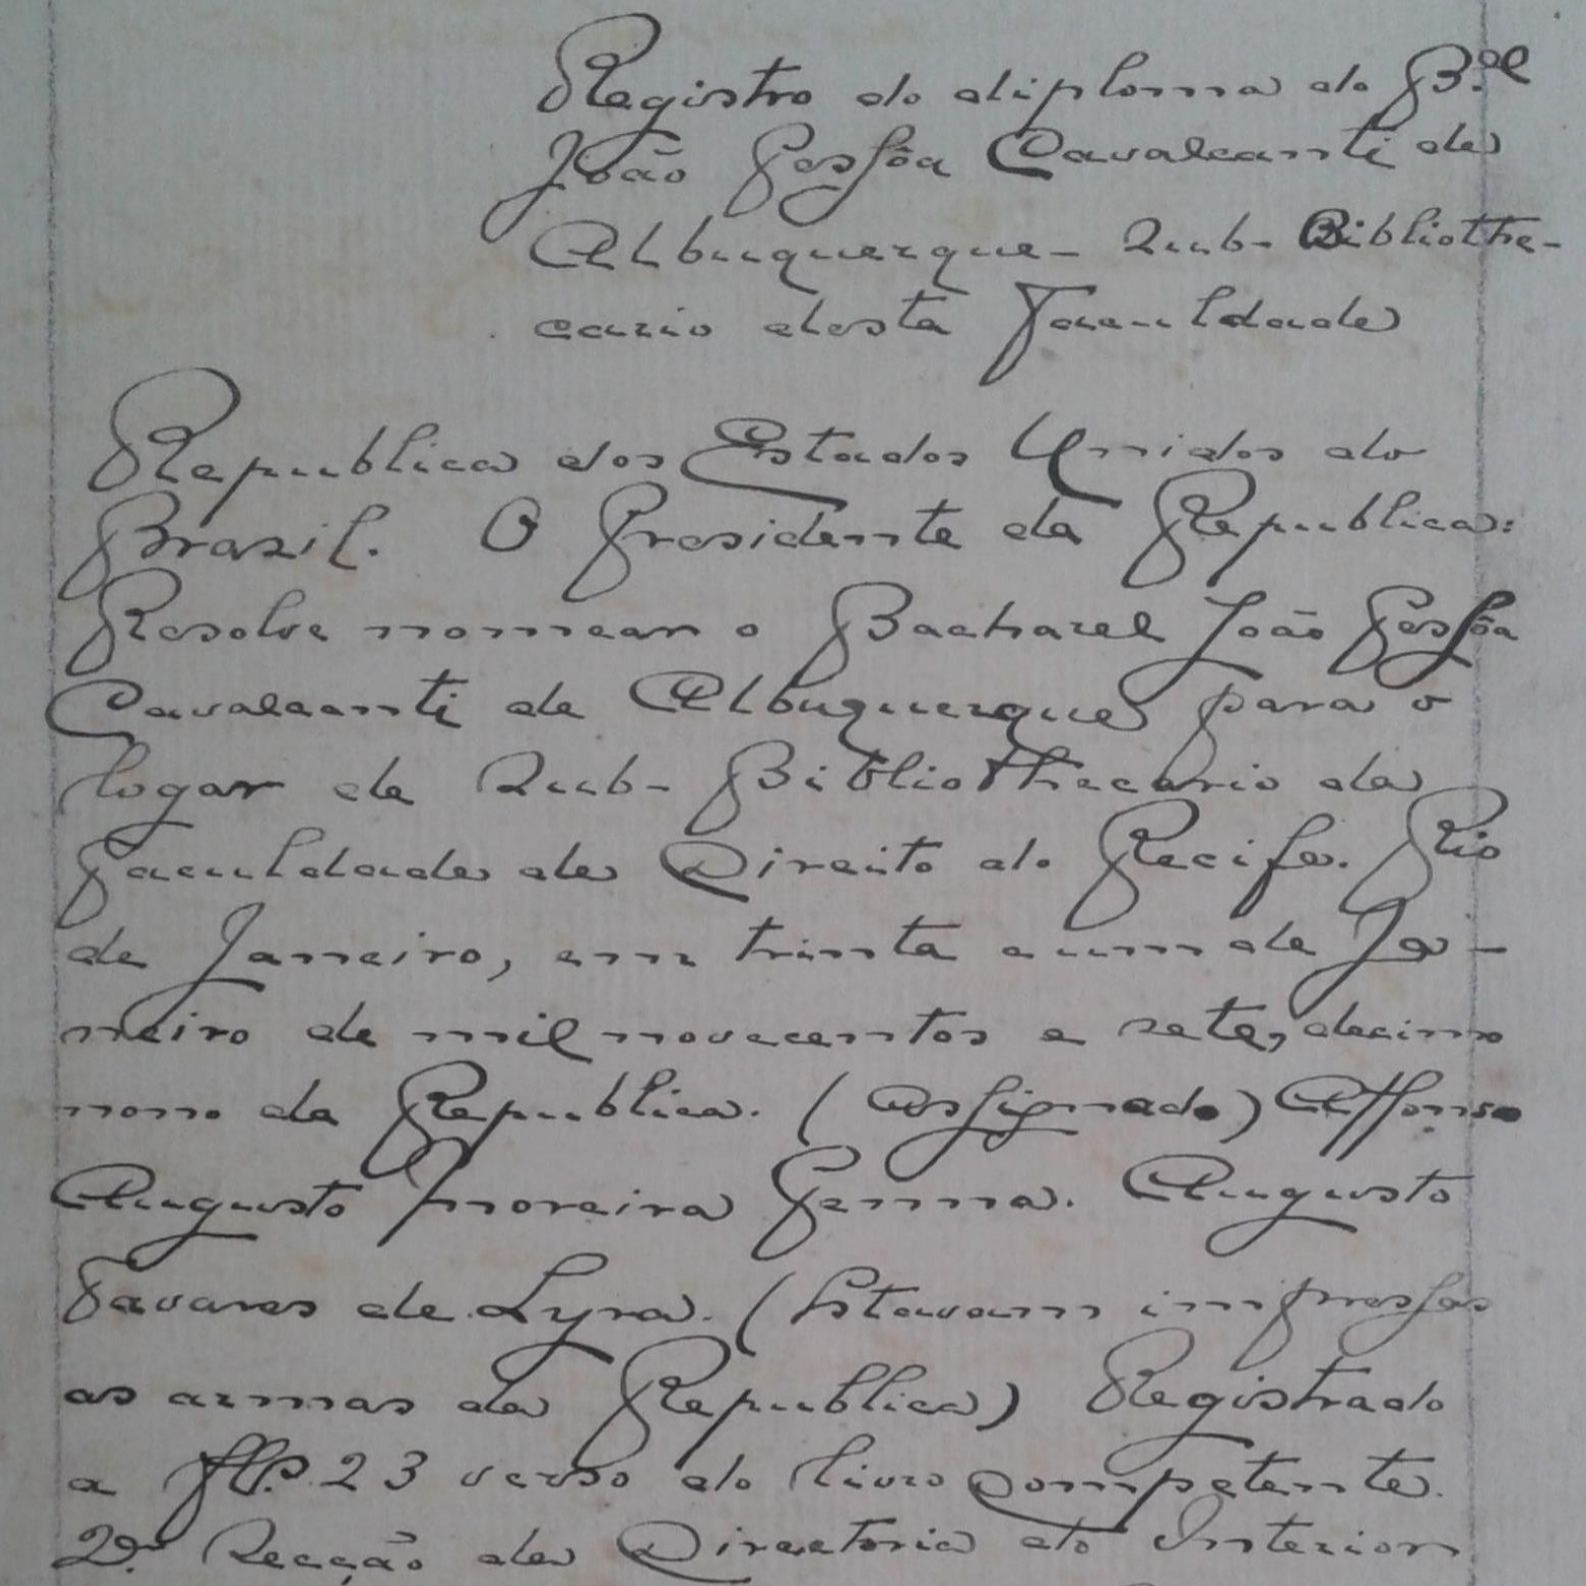 Registro do diploma do B.el
João Pessôa Cavalcanti de
Albuquerque - Sub-Bibliothe-
cario desta Faculdade
Republica dos Estados Unidos do
Brazil. O Presidente da Republica:
Resolve nomear o Bacharel João Pessôa
Cavalcanti de Albuquerque para o
logar de Sub-Bibliothecario da
Faculdade de Direito do Recife. Rio
de Janeiro, em trinta e um de Ja-
neiro de mil novecentos e sete, decimo
nono da Republica. (Assignado) Affonso
Augusto Moreira Penna. Augusto
Tavares de Lyra. (Estavam impressas
as armas da Republica) Registrado
a fls. 23 verso do livro competente.
2ª. Secção da Directoria do Interior